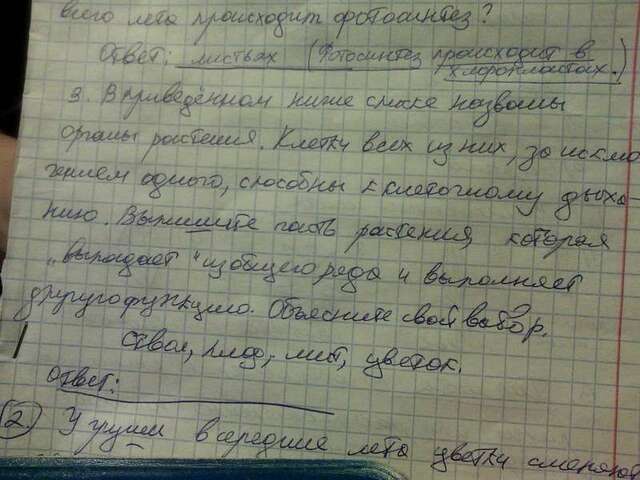 всего лета происходит фотосинтез?
Ответ: листьях (Фотосинтез происходит в
хлоропластах.)
3. В приведённом ниже списке названы
органы растения. Клетки всех из них, за исклю
чением одного, способны к клеточному дыха-
нию. Выпишите часть растения, которая
„выпадает" из общего ряда и выполняет
другую функцию. Объясните свой выбор.
Ствол, плод, лист, цветок.
Ответ:
2 У груши в середине лета цветки сменяют